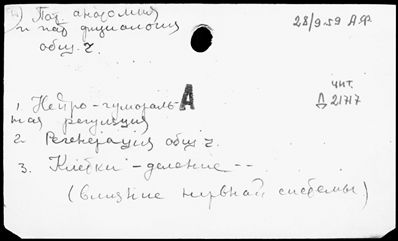 4) Пат. анатомия
и пат физиология
общ. ч.
28/9 59 А.Ф.
чит.
Д 21717
А
1. Нейро-гумораль-
ная регуляция
2. Регенерация общ. ч.
3. Клетки - деление --
(влияние нервной системы)